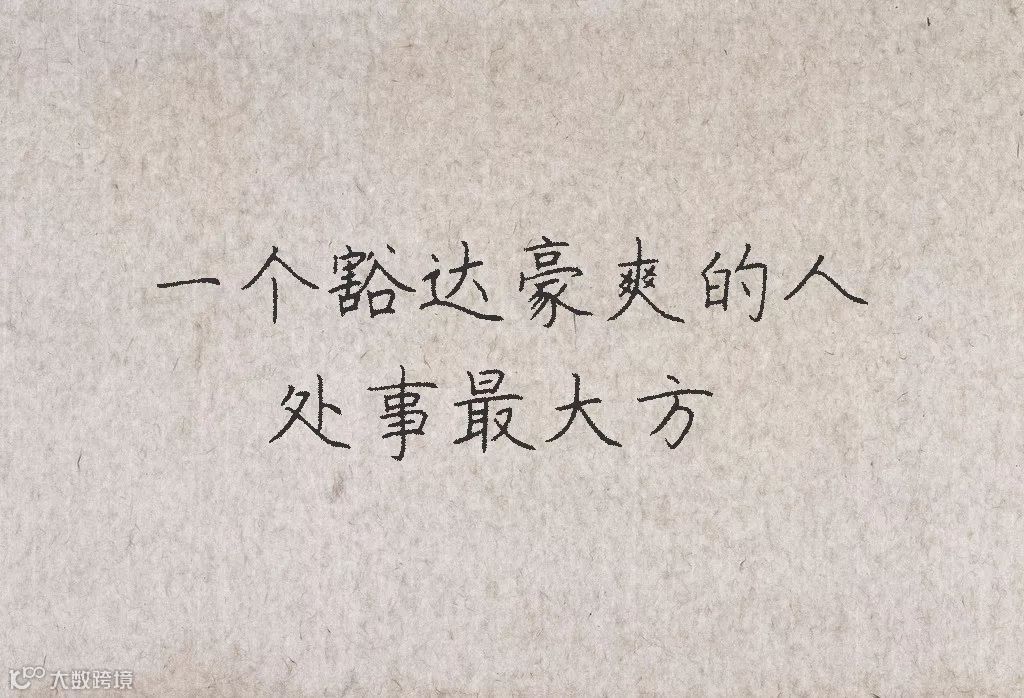 一个豁达豪爽的人
处事最大方
大数跨境